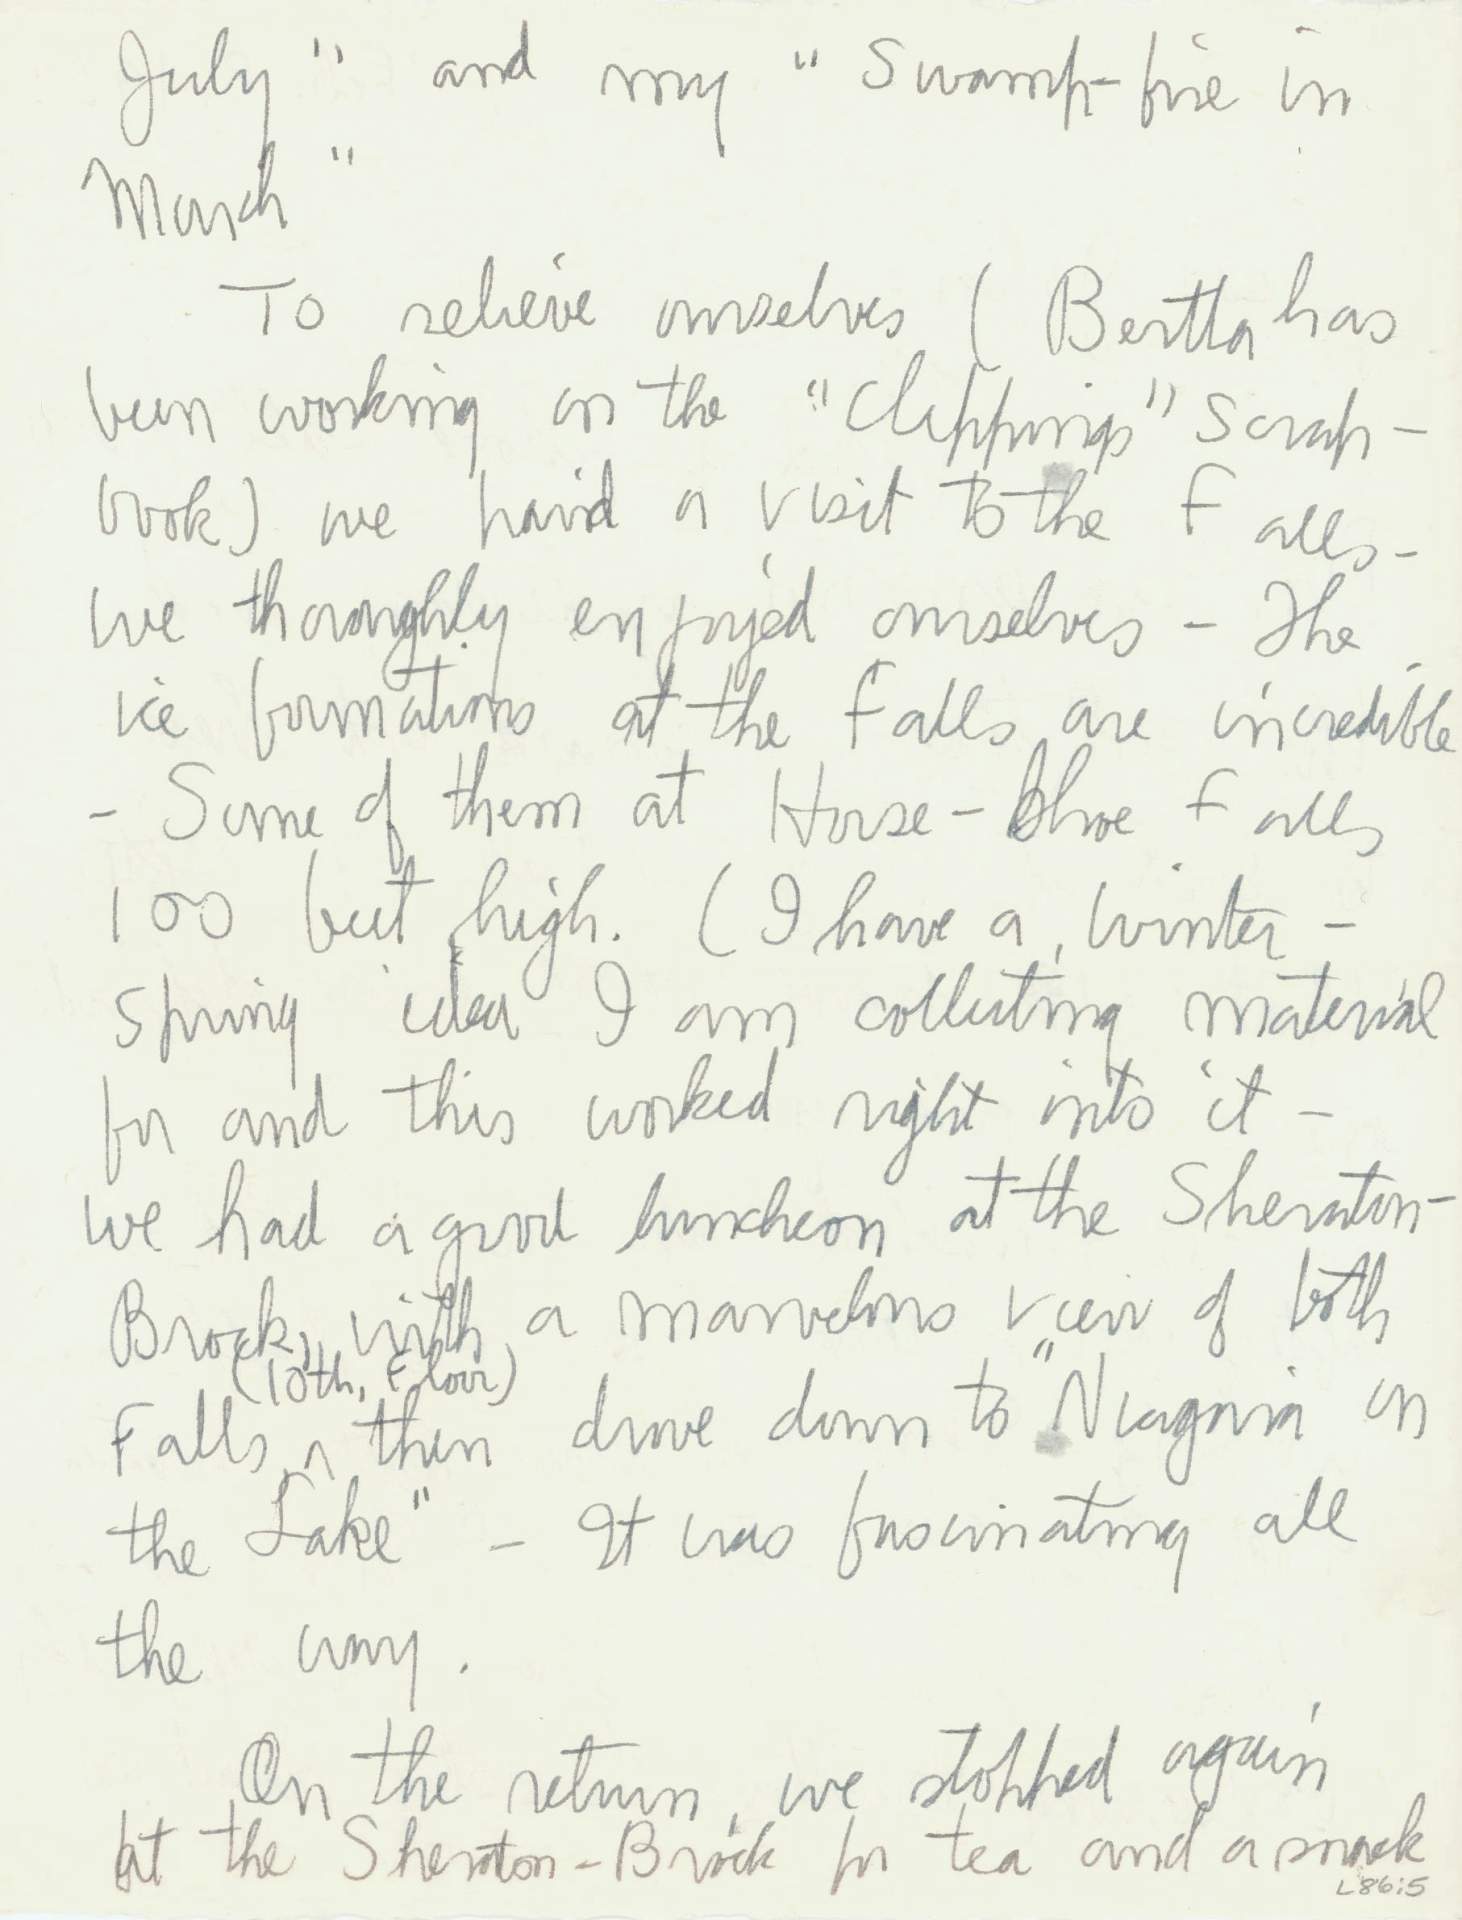 July" and my "Swamp-fire in
March"
To relieve ourselves (Bertha has
been working on the "Clippings" Scrap-
book) we had a visit to the Falls -
we thoroughly enjoyed ourselves - The
ice formations at the Falls are incredible
- Some of them at Horse-Shoe Falls
100 feet high. (I have a, Winter-
Spring idea I am collecting material
for and this worked right into it -
we had a good luncheon at the Sheraton-
Brock, with a marvelous view of both
(10th, Floor)
Falls, ^ then drove down to "Niagara on
the Lake" - It was fascinating all
the way.
On the return, we stopped again
at the Sheraton-Brock for tea and a snack
L86:5